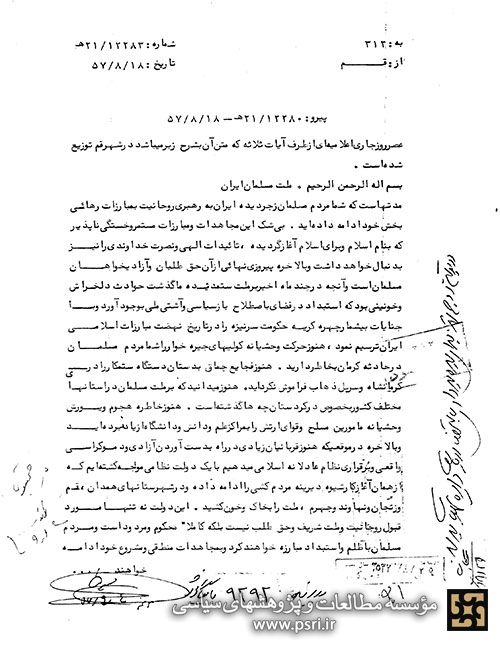 به: ۳۱۲
شماره: ۲۱/۱۲۲۸۳هـ
از: قم
تاریخ: ۵۷/۸/۱۸
پیرو: ۲۱/۱۲۲۸۰هـ – ۵۷/۸/۱۸
عصر روز جاری اعلامیه‌ای از طرف آیات ثلاثه که متن آن بشرح زیر میباشد در شهر قم توزیع
شده است.
بسم اله الرحمن الرحیم. ملت مسلمان ایران
مدتهاست که شما مردم مسلمان زجر دیده ایران به رهبری روحانیت بمبارزات رهائی
بخش خود ادامه داده‌اید. بی‌شک این مجاهدات و مبارزات مستمر و خستگی ناپذیر
که بنام اسلام و برای اسلام آغاز گردیده، تائیدات الهی و نصرت خداوندی را نیز
بدنبال خواهد داشت و بالاخره پیروزی نهائی از آن حق طلبان و آزادیخواهان
مسلمان است و آنچه در چند ماه اخیر بر ملت ستمدیده ما گذشت حوادث دلخراش
و خونینی بود که استبداد در فضای باصطلاح باز سیاسی و آشتی ملی بوجود آورد و با
جنایات بیشمار چهره کریه حکومت سرنیزه را در تاریخ نهضت مبارزات اسلامی
ایران ترسیم نمود، هنوز حرکت وحشیانه کولیهای جیره خوار را شما مردم مسلمان
در حادثه کرمان بخاطر دارید. هنوز فجایع جهانی بدستان دستگاه ستمکار را در
کرمانشاه و سرپل ذهاب فراموش نکرده‌اید. هنوز میدانید که بر ملت مسلمان در استانها
مختلف کشور بخصوص در کردستان چه‌ها گذشته است. هنوز خاطره هجوم و یورش
وحشیانه مامورین مسلح و قوای ارتشی را بمراکز علم و دانش و دانشگاه از یاد نبرده‌اید
و بالاخره در موقعیکه هنوز قربانیان زیادی در راه بدست آوردن آزادی و دموکراسی
واقعی و برقراری نظام عادلانه اسلامی میدهیم با یک دولت نظامی مواجه گشته‌ایم که
از همان آغاز کار شیوه دیرینه مردم کشی را ادامه داده و در شهرستانهای همدان، قم
و زنجان و نهاوند و جهرم، ملت را بخاک و خون کشید. این دولت نه تنها مورد
قبول روحانیت و ملت شریف و حق طلب نیست بلکه کاملا" محکوم و مردود است و مردم
مسلمان با ظلم و استبداد مبارزه خواهند کرد و بمجاهدات منطقی و مشروع خود ادامه
خواهند
۹۲۹۲
مؤسسه مطالعات و پژوهشهای سیاسی
www.psri.ir